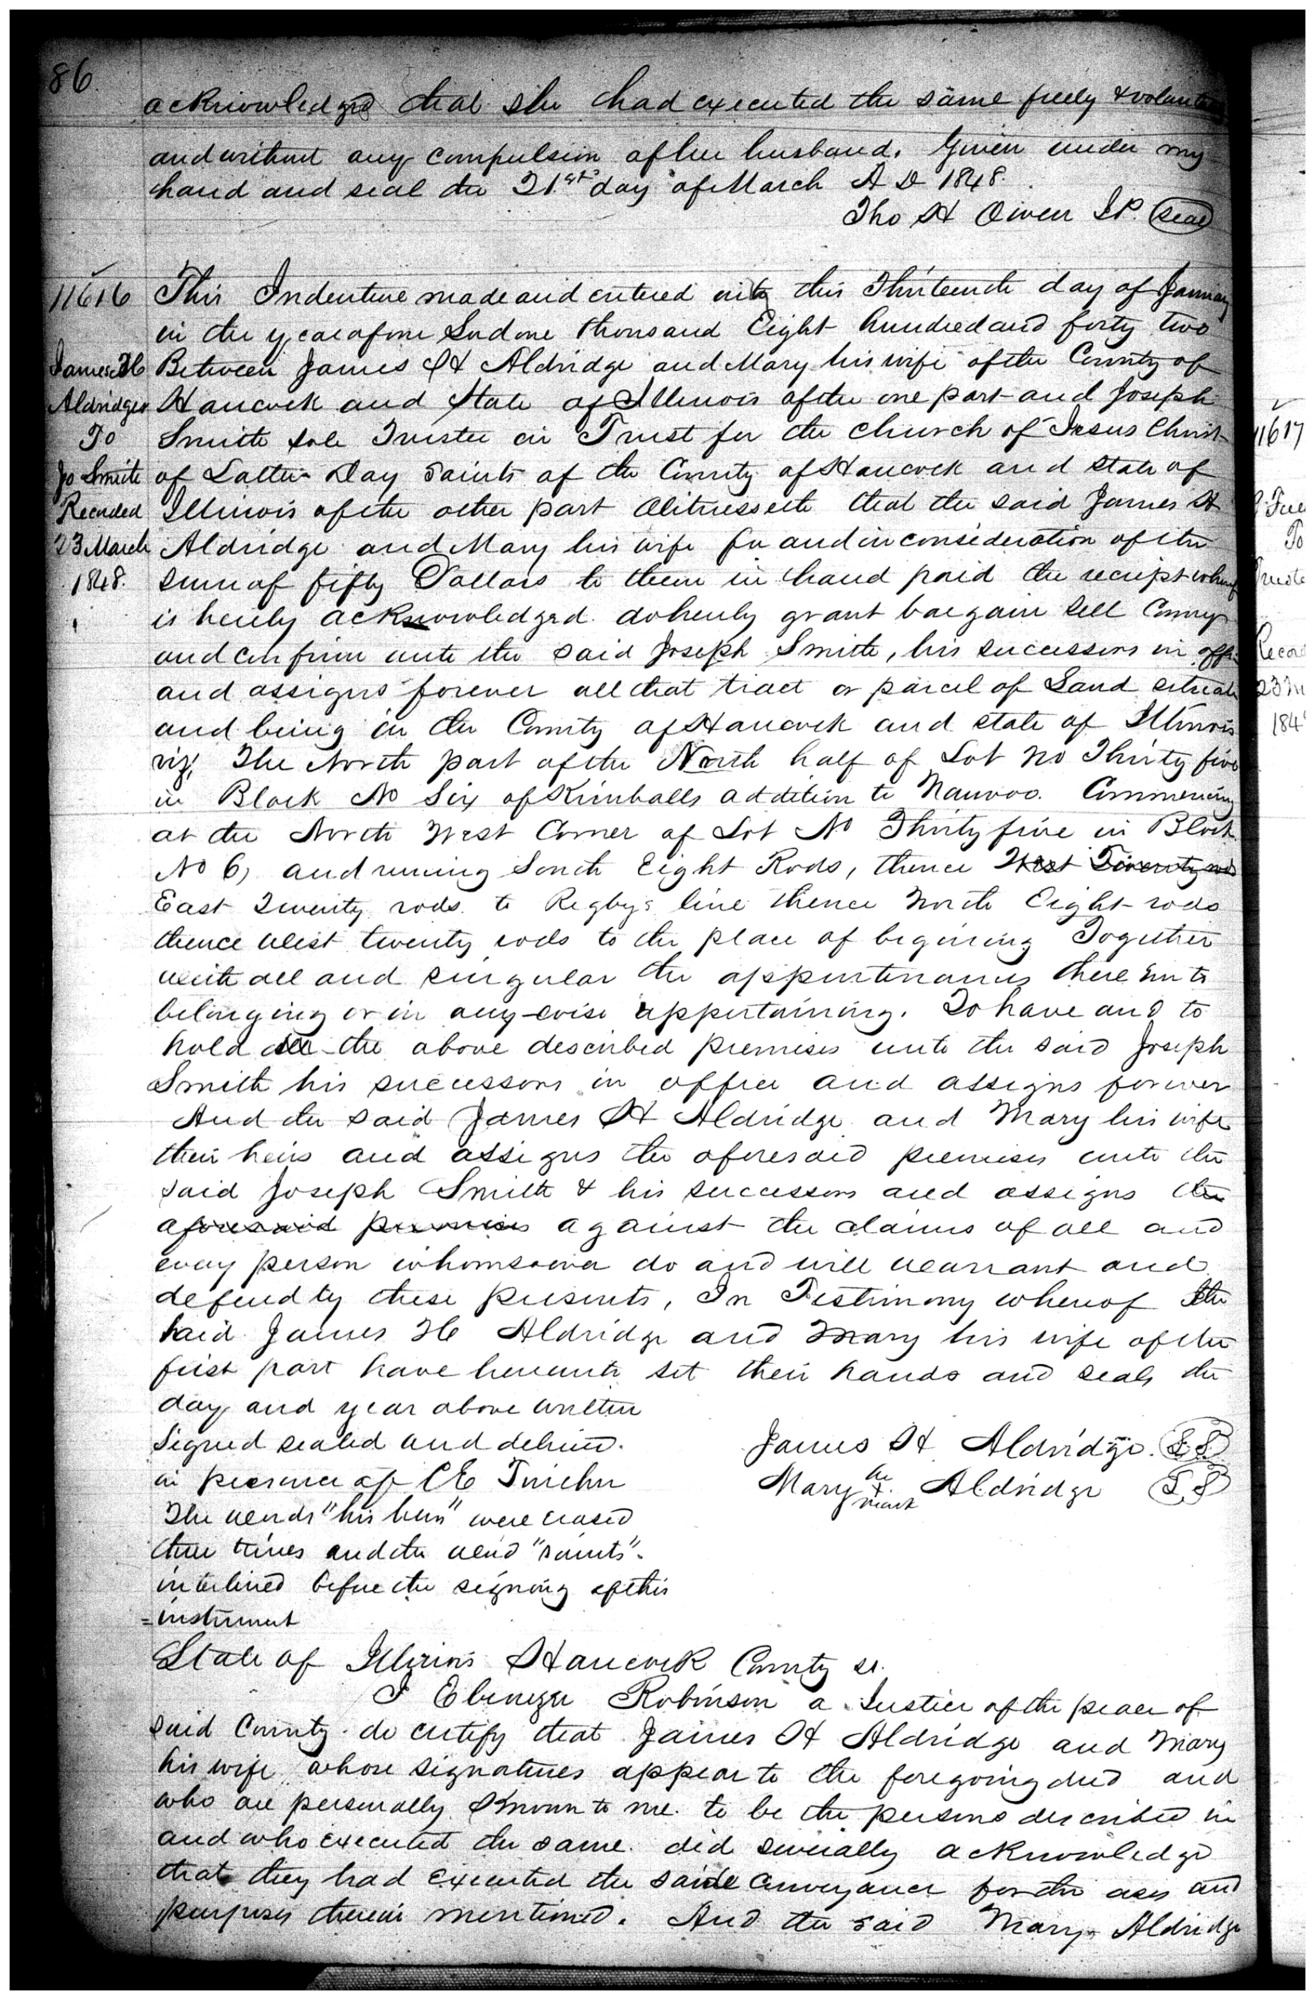 86
acknowledged that she had executed the same freely & volunta
and without any compulsion of her husband. Given under my
hand and seal the 21st day of March A D 1848.
Tho H Owen J.P. (seal)
11616
James H
Aldridge
To
Jo Smith
Recorded
23 March
1848.
This Indenture made and entered into this Thirteenth day of January
in the year of our Lord one thousand Eight hundred and forty two
Between James H Aldridge and Mary his wife of the County of
Hancock and State of Illinois of the one part and Joseph
Smith sole Trustee in Trust for the Church of Jesus Christ
of Latter Day Saints of the County of Hancock and State of
Illinois of the other part Witnesseth that the said James H
Aldridge and Mary his wife for and in consideration of the
sum of fifty Dollars to them in hand paid the receipt whereof
is hereby acknowledged do hereby grant bargain sell Convey
and confirm unto the said Joseph Smith, his successors in office
and assigns forever all that tract or parcel of Land situate
and being in the County of Hancock and state of Illinois
viz, The North part of the North half of Lot No Thirty five
in Block No Six of Kimballs addition to Nauvoo. Commencing
at the North West Corner of Lot No Thirty five in Block
No 6, and runing South Eight Rods, thence West Twenty rods
East Twenty rods to Regby's line thence North Eight rods
thence West twenty rods to the place of begining Together
with all and singular the appurtenances there unto
belonging or in any-wise appertaining. To have and to
hold all the above described premises unto the said Joseph
Smith his successors in office and assigns forever
And the said James H Aldridge and Mary his wife
their heirs and assigns the aforesaid premises unto the
said Joseph Smith & his successors and assigns the
aforesaid premises against the claims of all and
every person whomsoever do and will warrant and
defend by these presents, In Testimony whereof the
said James H Aldridge and Mary his wife of the
first part have hereunto set their hands and seals the
day and year above written
Signed sealed and deliverd.
in presence of
James H Aldridge. (L.S.)
Mary her x mark Aldridge (L.S)
The words "his heirs" were erased
three times and the word "saints"
interlined before the signing of this
=instrument
State of Illinois Hancock County ss.
I Ebenezer Robinson a Justice of the peace of
said County do certify that James H Aldridge and Mary
his wife whose signatures appear to the foregoing deed and
who are personally known to me to be the persons described in
and who executed the same did severally acknowledge
that they had executed the said conveyance for the uses and
purposes therein mentioned. And the said Mary Aldridge
11617
To
Recor
23 M
184